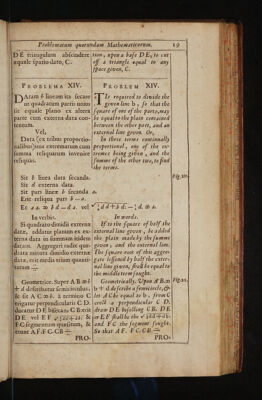 Problematum quorundam Mathematicorum. 19
DE triangulum abscindere
æquale spatio dato, C.
tion, upon a base DE, to cut
off a triangle equal to any
space given, C.
PROBLEMA XIV.
DAtam b lineam ita secare
ut quadratum partis unius
sit equale plano ex altera
parte cum externa data con-
tentum.
Vel,
Data (ex tribus proportio-
nalibus) una extremarum cum
summa reliquarum invenire
reliquas.
PROBLEM XIV.
IT Is required to divide the
given line b, so that the
square of one of the parts, may
be equal to the plain contained
between the other part, and an
external line given. Or,
In three terms continually
proportional, one of the ex-
treames being given, and the
summe of the other two, to find
the terms.
Sit b linea data secanda.
Sit d externa data.
Sit pars lineæ b secanda a.
Erit reliqua pars b—a.
Et a a = b d — d a. vel
In verbis.
Si quadrato dimidii externæ
datæ, addatur planum ex ex-
terna data in summam itidem
datam. Aggregati radix qua-
drata mitata dimidio externæ
datæ, erit media trium quanti-
tatum
In words.
If to the square of half the
external line given, be added
the plain made by the summe
given, and the external line.
The square root of this aggre-
gate lessened by half the exter-
nal line given, shall be equal to
the middle term sought.
Geometrice. Super A B =
+ d describatur semicirculus.
& sit A C = b. à termino C
erigatur perpendicularis C D.
ducatur D E bisecans C B. erit
DE vel EF
FC segmentum quæsitum, &
erunt A F. F C. C B
Geometrically. Upon A B =
b + d describe a semicircle, &
let A C be equal to b, from C
erect a perpendicular C D.
draw D E bisecting C B. D E
or E F shall be the
and F C the segment sought.
So that A F. F C. C B.
Fig. 20.
Fig. 21.
PRO-
PRO-